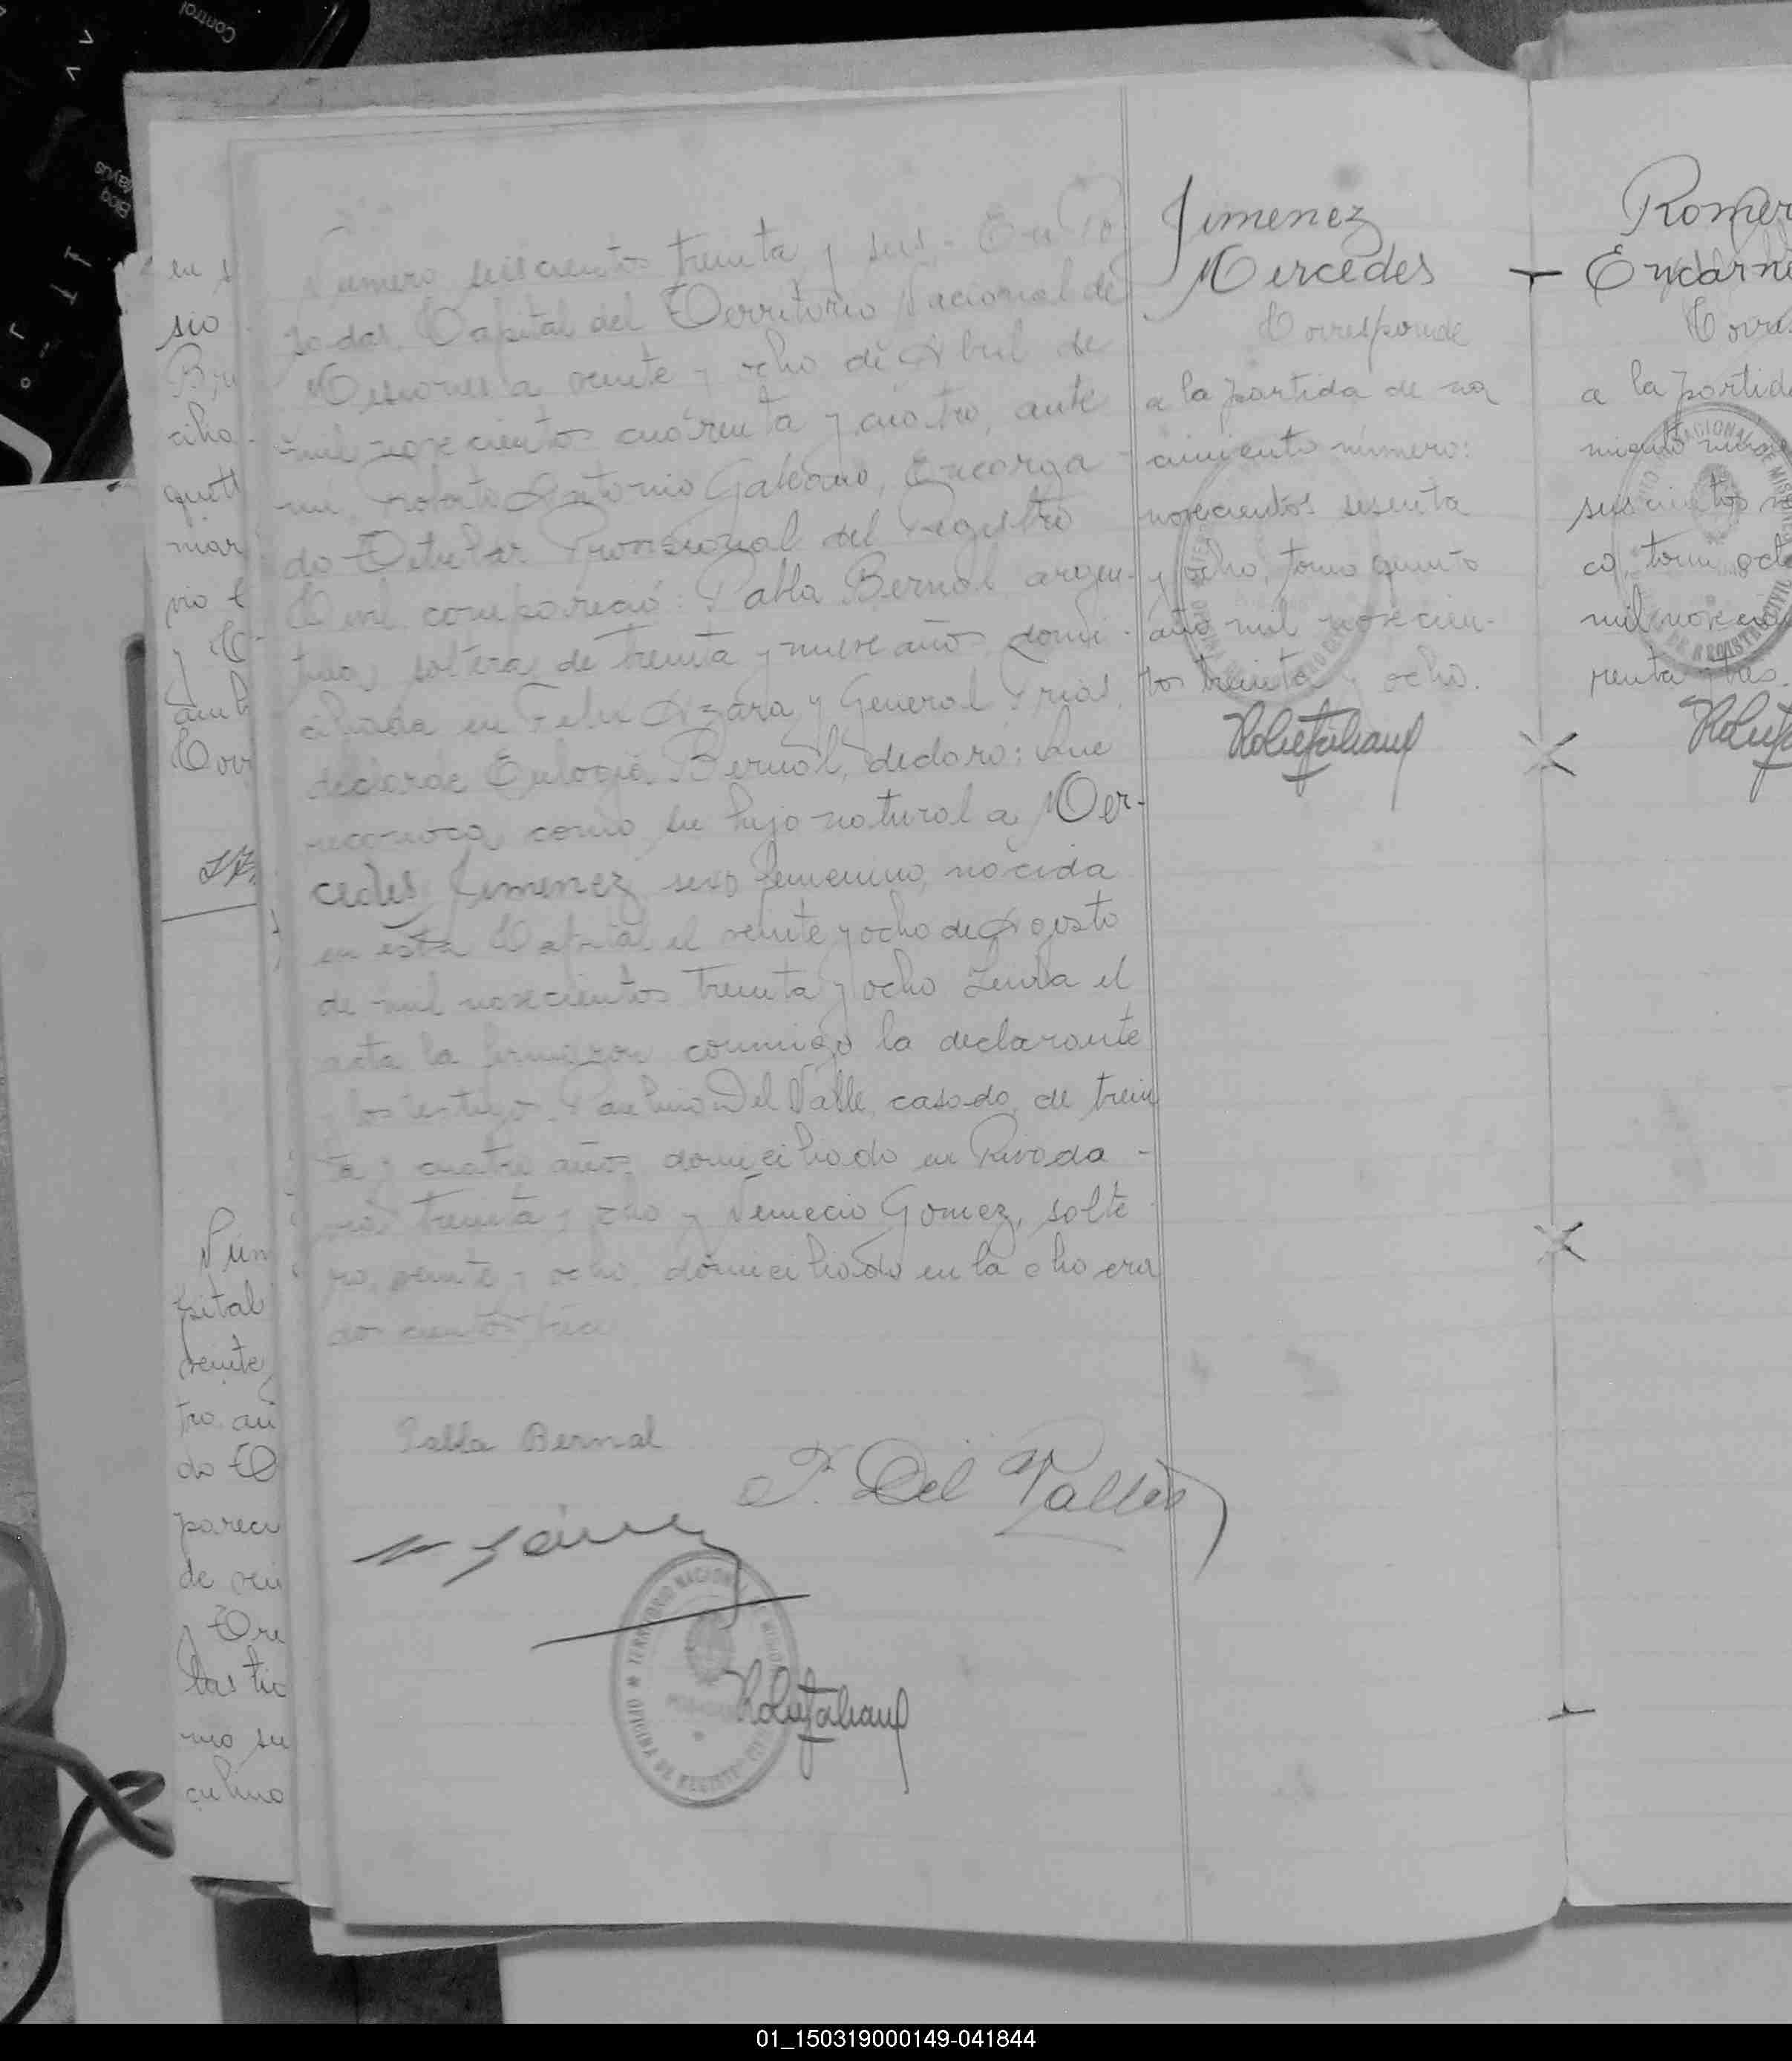 Control
Bloq
Mayus
Numero seiscientos treinta y seis.- En Po
sadas, Capital del Territorio Nacional de
Misiones a veinte y ocho de Abril de
mil novecientos cuarenta y cuatro, ante
mi, Roberto Antonio Galeano, Encarga
do Titular Provisional del Registro
Civil comparecio: Pabla Bernal argen-
tina, soltera de treinta y nueve años domi-
ciliada en Felix Azara y General Frias,
de Eulogia Bernal, declaro: Que
reconoce como su hijo natural a Mer-
cedes Jimenez sexo femenino, nacida
en esta Capital el veinte y ocho de Agosto
de mil novecientos treinta y ocho Leida el
acta la firmaron conmigo la declarante
y los testigos Paulino Del Valle, casado, de trein
ta y cuatro años, domiciliado en Rivada-
via treinta y ocho y Nemecio Gomez, solte
ro, veinte y ocho, domiciliado en la chacra
dos cientos tres
Pabla Bernal
P. Del Valle
TERRITORIO NACIONAL DE MISIONES
OFICINA DE REGISTRO CIVIL
Jimenez
Mercedes
Corresponde
a la partida de na
cimiento número:
novecientos sesenta
y ocho, tomo quinto
año mil novecien-
tos treinta y ocho.
Romer
Encarna
Corres
a la partid
miento num
seiscientos no
co, tomo octa
mil novecien
renta y tres.
en s
sio
ciho
mar
y C
Corr
Num
pital
veinte
tro. añ
do T
pareci
de vei
las tio
mo su
culino
01_150319000149-041844